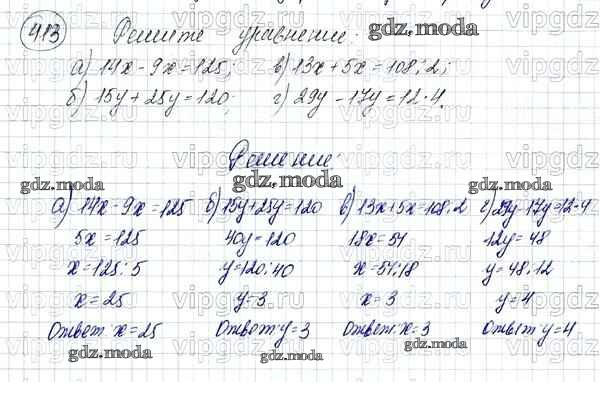 413 Решите уравнение:
а) 14x - 9x = 125; в) 13x + 5x = 108:2;
б) 15y + 25y = 120; г) 29y - 17y = 12·4.
Решение:
а) 14x - 9x = 125 б) 15y + 25y = 120 в) 13x + 5x = 108:2 г) 29y - 17y = 12·4
5x = 125 40y = 120 18x = 54 12y = 48
x = 125:5 y = 120:40 x = 54:18 y = 48:12
x = 25 y = 3 x = 3 y = 4
Ответ: x = 25 Ответ: y = 3 Ответ: x = 3 Ответ: y = 4
gdz.moda
gdz.moda
gdz.moda
gdz.moda
gdz.moda
gdz.moda
gdz.moda
vipgdz.ru